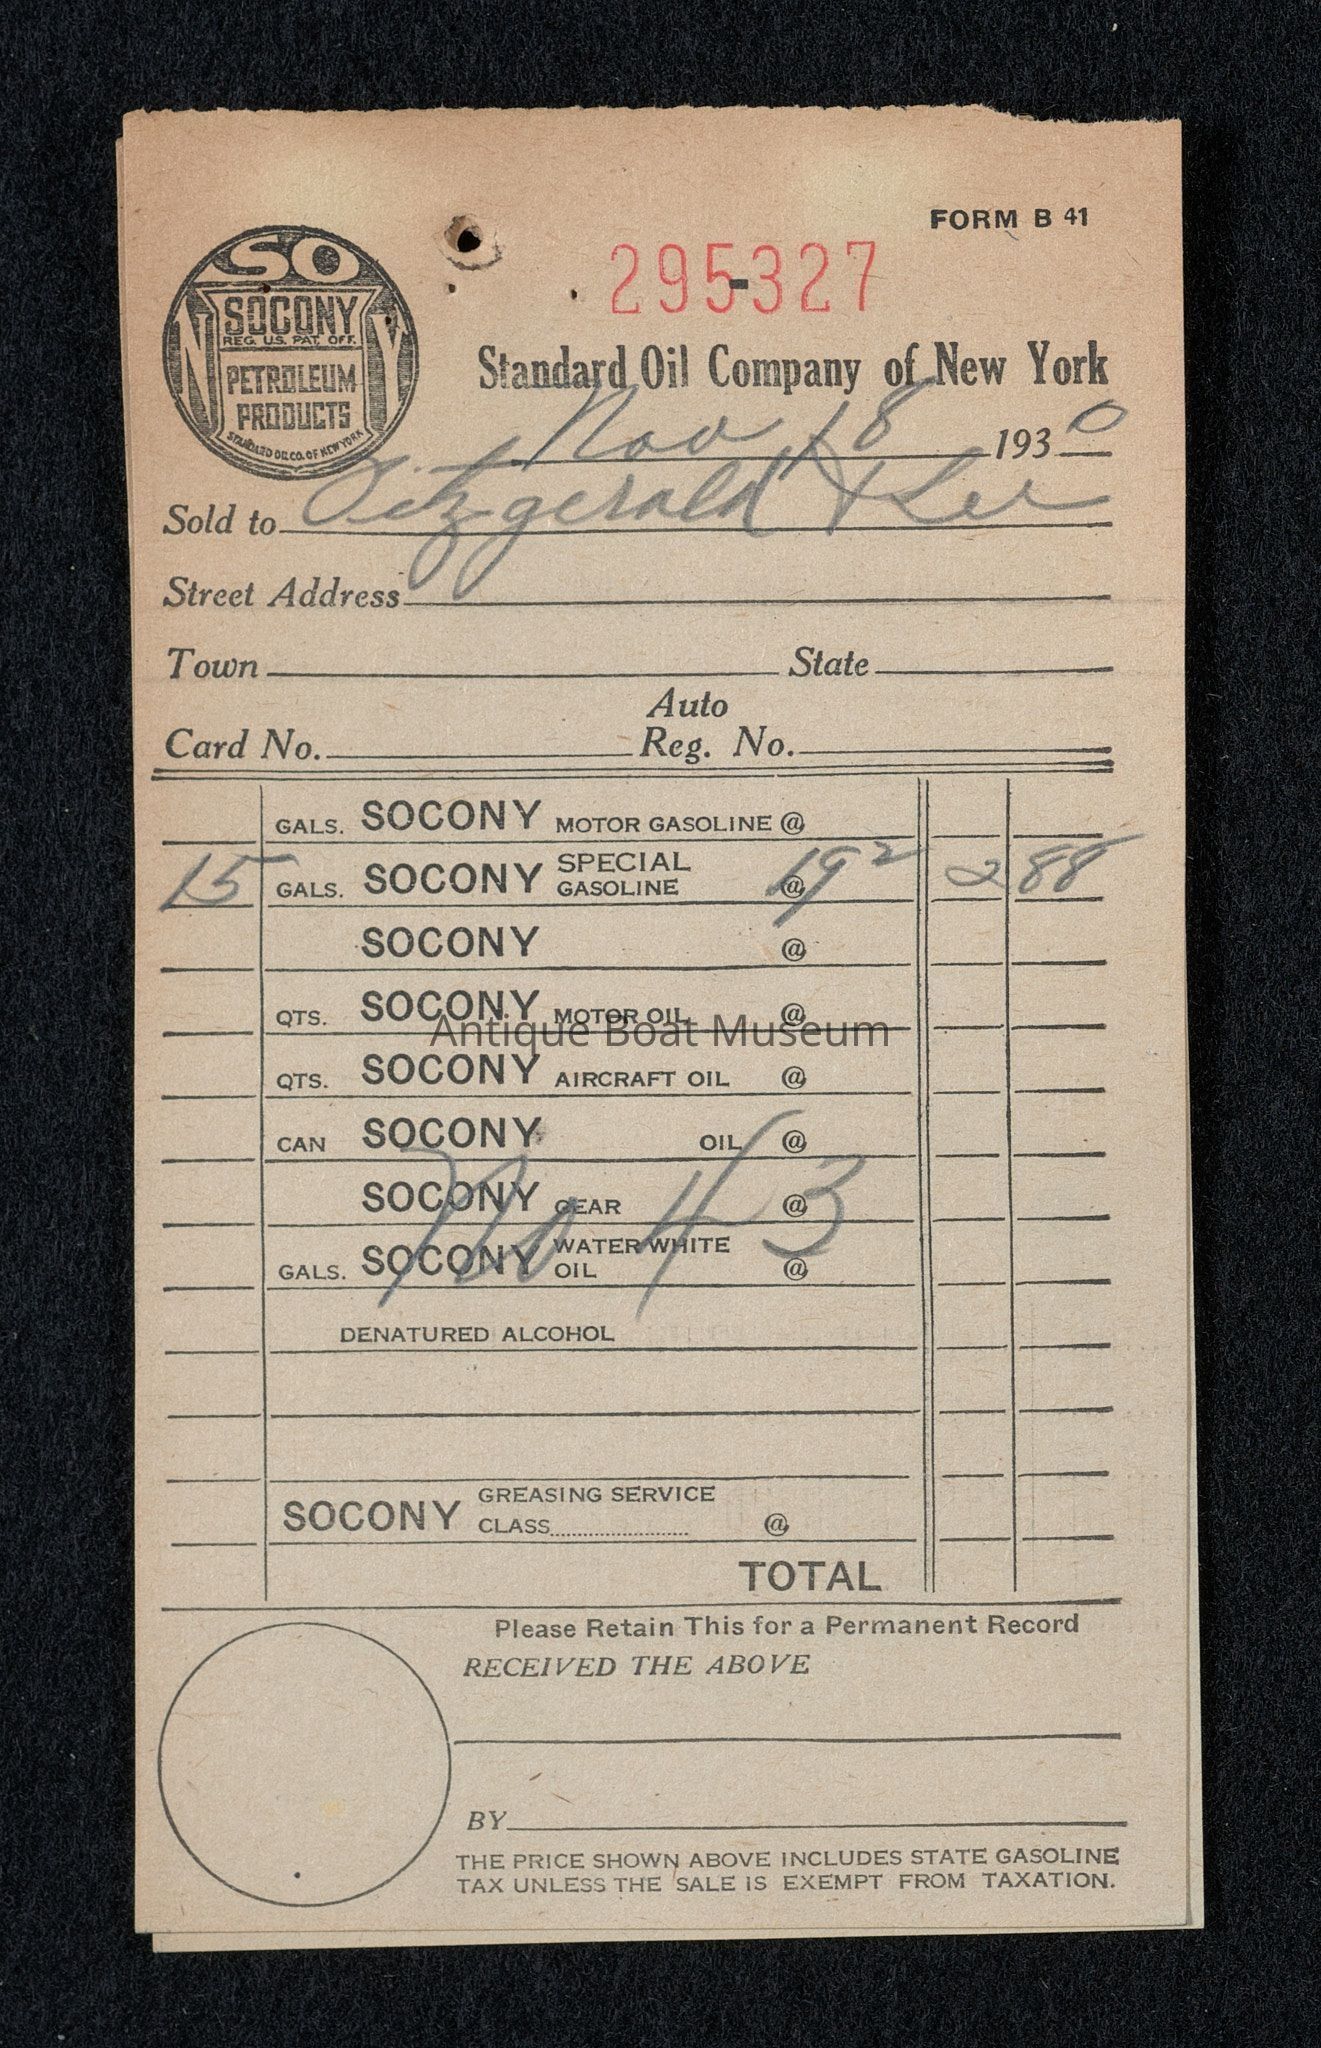 FORM B 41
295-327
SO
N Y
SOCONY
REG. U.S. PAT. OFF.
PETROLEUM
PRODUCTS
STANDARD OIL CO. OF NEW YORK
Standard Oil Company of New York
Nov 18 1930
Sold to Fitzgerald & Lee
Street Address
Town State
Auto
Card No. Reg. No.
GALS. SOCONY MOTOR GASOLINE @
15 GALS. SOCONY SPECIAL GASOLINE @ 19 2 2 88
SOCONY @
QTS. SOCONY MOTOR OIL @
Antique Boat Museum
QTS. SOCONY AIRCRAFT OIL @
CAN SOCONY OIL @
SOCONY GEAR @
No 43
GALS. SOCONY WATER WHITE OIL @
DENATURED ALCOHOL
SOCONY GREASING SERVICE
CLASS @
TOTAL
Please Retain This for a Permanent Record
RECEIVED THE ABOVE
BY
THE PRICE SHOWN ABOVE INCLUDES STATE GASOLINE
TAX UNLESS THE SALE IS EXEMPT FROM TAXATION.